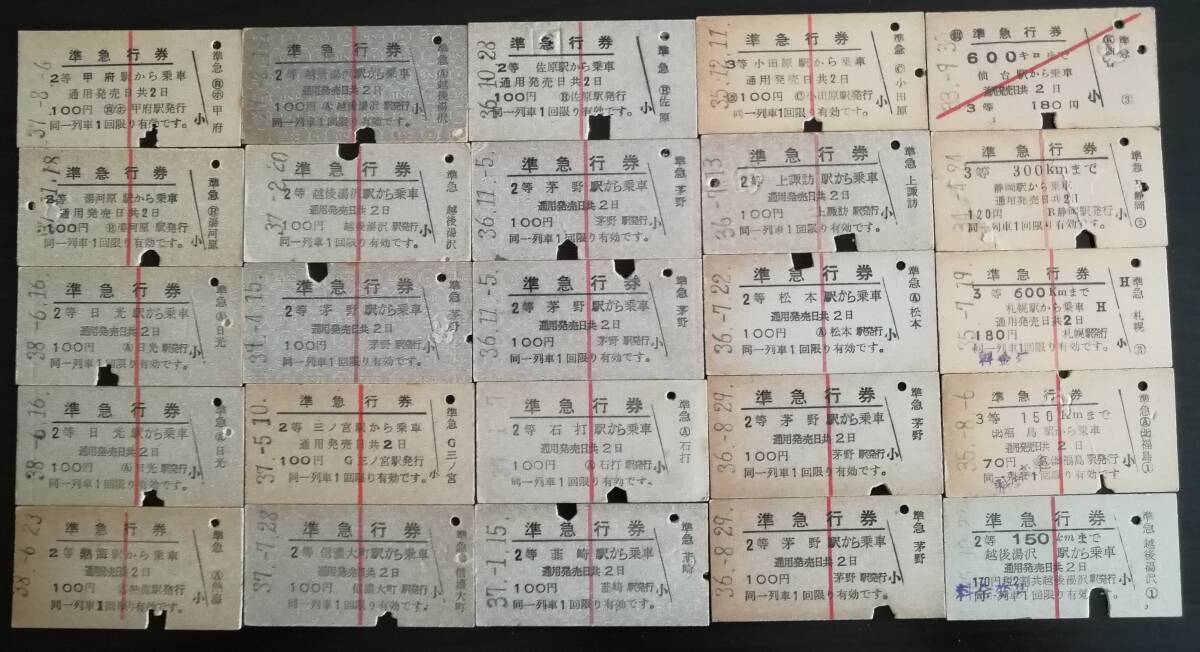 37.-8.-6
準急行券
2等 甲府駅から乗車
通用発売日共2日
100円 甲府駅発行
同一列車1回限り有効です。
小
準急 甲府
準急行券
2等 越後湯沢駅から乗車
通用発売日共2日
100円 Ⓐ越後湯沢駅発行
同一列車1回限り有効です。
小
準急 Ⓐ越後湯沢
36.10.28
準急行券
2等 佐原駅から乗車
通用発売日共2日
100円 Ⓑ佐原駅発行
同一列車1回限り有効です。
小
準急 Ⓑ佐原
35.12.11
準急行券
3等 小田原駅から乗車
通用発売日共2日
100円 Ⓒ小田原駅発行
同一列車1回限り有効です。
小
準急 Ⓒ小田原
33.-9.3
準急行券
600キロまで
仙台駅から乗車
通用発売日共2日
3等 180円
小
準急
③
1.18
準急行券
3等 湯河原駅から乗車
通用発売日共2日
100円 Ⓑ湯河原駅発行
同一列車1回限り有効です。
小
準急 Ⓑ湯河原
37.-2.20
準急行券
2等 越後湯沢駅から乗車
通用発売日共2日
100円 越後湯沢駅発行
同一列車1回限り有効です。
小
準急 越後湯沢
36.11.-5.
準急行券
2等 茅野駅から乗車
通用発売日共2日
100円 茅野駅発行
同一列車1回限り有効です。
小
準急 茅野
36.-7.13
準急行券
2等 上諏訪駅から乗車
通用発売日共2日
100円 上諏訪駅発行
同一列車1回限り有効です。
小
準急 上諏訪
準急行券
3等 300kmまで
静岡駅から乗車
通用発売日共2日
120円 B静岡駅発行
同一列車1回限り有効です。
小
準急 静岡
③
38.-6.16
準急行券
2等 日光駅から乗車
通用発売日共2日
100円 Ⓐ日光駅発行
同一列車1回限り有効です。
小
準急 Ⓐ日光
37.-4.15.
準急行券
2等 茅野駅から乗車
通用発売日共2日
100円 茅野駅発行
同一列車1回限り有効です。
小
準急 茅野
36.11.-5.
準急行券
2等 茅野駅から乗車
通用発売日共2日
100円 茅野駅発行
同一列車1回限り有効です。
小
準急 茅野
36.-7.22
準急行券
2等 松本駅から乗車
通用発売日共2日
100円 Ⓐ松本駅発行
同一列車1回限り有効です。
小
準急 Ⓐ松本
35.-7.19
準急行券
3等 600Kmまで
札幌駅から乗車
通用発売日共2日
180円 札幌駅発行
同一列車1回限り有効です。
小
H
H
準急 札幌
③
38.-6.16
準急行券
2等 日光駅から乗車
通用発売日共2日
100円 Ⓐ日光駅発行
同一列車1回限り有効です。
小
準急 Ⓐ日光
37.-5.10.
準急行券
2等 三ノ宮駅から乗車
通用発売日共2日
100円 G三ノ宮駅発行
同一列車1回限り有効です。
小
準急 G三ノ宮
準急行券
2等 石打駅から乗車
通用発売日共2日
100円 Ⓐ石打駅発行
同一列車1回限り有効です。
小
準急 Ⓐ石打
36.-8.29
準急行券
2等 茅野駅から乗車
通用発売日共2日
100円 茅野駅発行
同一列車1回限り有効です。
小
準急 茅野
35.-8.-6
準急行券
3等 150Kmまで
福島駅から乗車
通用発売日共2日
70円 福島駅発行
同一列車1回限り有効です。
小
準急 Ⓐ福島
①
38.-6.23
準急行券
2等 熱海駅から乗車
通用発売日共2日
100円 Ⓐ熱海駅発行
同一列車1回限り有効です。
小
準急 Ⓐ熱海
37.-7.28
準急行券
2等 信濃大町駅から乗車
通用発売日共2日
100円 信濃大町駅発行
同一列車1回限り有効です。
小
準急 信濃大町
37.-1.15.
準急行券
2等 韮崎駅から乗車
通用発売日共2日
100円 韮崎駅発行
同一列車1回限り有効です。
小
準急 韮崎
36.-8.29
準急行券
2等 茅野駅から乗車
通用発売日共2日
100円 茅野駅発行
同一列車1回限り有効です。
小
準急 茅野
準急行券
2等 150kmまで
越後湯沢駅から乗車
通用発売日共2日
170円税2割共越後湯沢駅発行
同一列車1回限り有効です。
小
準急 越後湯沢
①